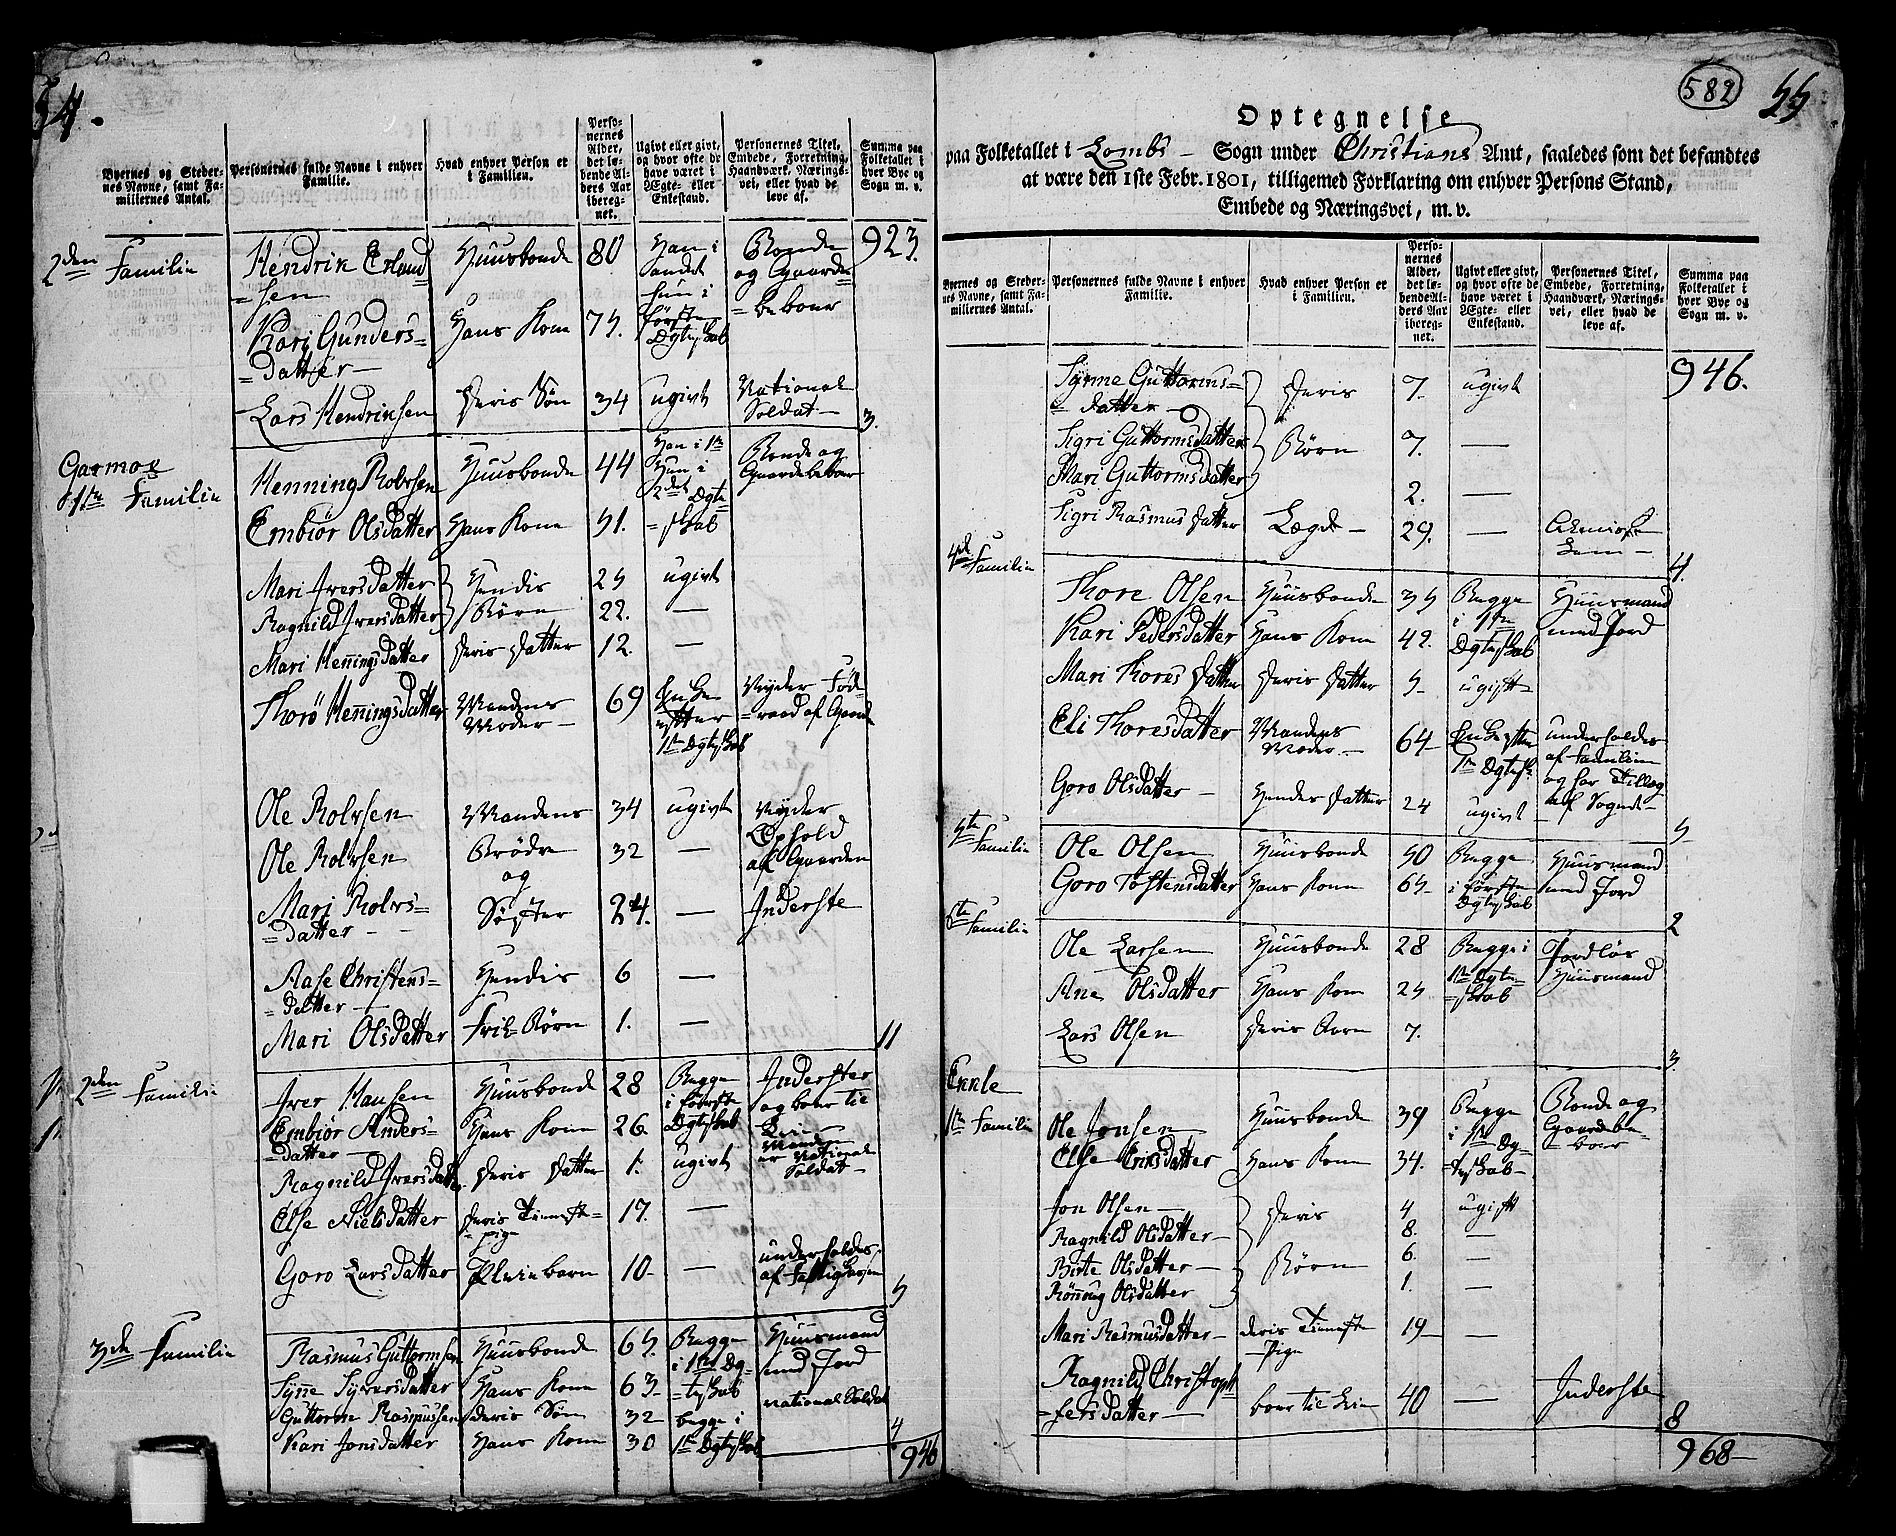 54.
Byernes og Steder-
nes Navne, samt Fa-
miliernes Antal.
Personernes fulde Navne i enhver
Familie.
Hvad enhver Person er
i Familien.
Perso-
nernes
Alder,
det lø-
bende Al-
ders Aar
ibereg-
net.
Ugivt eller givt,
og hvor ofte de
have været i
Ægte- eller
Enkestand.
Personernes Titel,
Embede, Forretning,
Haandværk, Nærings-
vei, eller hvad de
leve af.
Summa paa
Folketallet i
hver Bye og
Sogn m. v.
923.
2den Familie
Hendrik Erland
=sen Huusbonde 80 Han i andet Bonde og Gaarde
Kari Gunders-
=datter Hans Kone 75. hun i første Ægteskab =beboer
Lars Hendriksen Deris Søn 34 ugivt National Soldat 3.
Garmoe
1ste Familie
Henning Rolvsen Huusbonde 44 Han i 1te Hun i Bonde og Gaardebeboer
Embiør Olsdatter Hans Kone 51. 2det Ægte =skab
Mari Iversdatter Hendis 25 ugivt
Ragnild Iversdatter Børn 22. —
Mari Henningsdatter Deris Datter 12. —
Thorø Henningsdatter Mandens Moder 69 Enke efter 1te Ægteskab Nyder Fød-
=raad af Gaarden
Ole Rolvsen Mandens 34 ugivt Nyder
Ole Rolvsen Brødre 32 — Ophold af Gaarden
og
Mari Rolvs-
=datter Søster 24. — Inderste
Aase Christens-
=datter Hendis 6 —
Mari Olsdatter Frile-Børn 1. — 11
2den Familie
Iver Hansen Huusbonde 28 Begge i første Inderster og boer til
Embiør Anders-
=datter Hans Kone 26. Ægteskab Leie Manden er National Soldat
Ragnild Iversdatter Deris Datter 1. ugivt
Else Nielsdatter Deris Tieneste-
=pige 17. —
Goro Larsdatter Pleiebarn 10 — underholdes af Fattigkassen 5
3de Familie
Rasmus Guttormsen Huusbonde 65. Begge i 1ste Æg- Huusmand med Jord
Synne Syversdatter Hans Kone 63 =teskab
Guttorm Rasmussen Deris Søn 32 begge i national Soldat
Kari Jonsdatter Hans Kone 30 1te Ægteskab 4
946
582
55
Optegnelse
paa Folketallet i Lombs Sogn under Christians Amt, saaledes som det befandtes
at være den 1ste Febr. 1801, tilligemed Forklaring om enhver Persons Stand,
Embede og Næringsvei, m. v.
Byernes og Steder-
nes Navne, samt Fa-
miliernes Antal.
Personernes fulde Navne i enhver
Familie.
Hvad enhver Person er
i Familien.
Perso-
nernes
Alder,
det lø-
bende Al-
ders Aar
ibereg-
net.
Ugivt eller givt,
og hvor ofte de
have været i
Ægte- eller
Enkestand.
Personernes Titel,
Embede, Forretning,
Haandværk, Nærings-
vei, eller hvad de
leve af.
Summa paa
Folketallet i
hver Bye og
Sogn m. v.
946.
Synne Guttorms-
=datter Deris 7. ugivt
Sigri Guttormsdatter Børn 7. —
Mari Guttormsdatter 2. —
Sigri Rasmus datter Lægd 29. — Almisse Lem 4.
4de Familie
Thore Olsen Huusbonde 35 Begge i 1te Huusmand
Kari Pedersdatter Hans Kone 42. Ægteskab med Jord
Mari Thores datter Deris Datter 5 ugift
Eli Thoresdatter Mandens Moder 64 Enke efter 1te Ægtesk. underholdes af Familien
Goro Olsdatter Hendes Datter 24 ugivt og har Tillæg af Sognet 5
5te Familie
Ole Olsen Huusbonde 50 Begge Huusmand
Goro Tostensdatter Hans Kone 65 i første Ægteskab med Jord 2
6te Familie
Ole Larsen Huusbonde 28 Begge i Jordløs
Ane Olsdatter Hans Kone 25 1te Ægte-
=skab Huusmand
Lars Olsen Deris Barn 7. 3
1te Familie
Ole Jonsen Huusbonde 39 Begge Bonde og
Else Eriksdatter Hans Kone 34. i 1te Æg-
=teskab Gaardebe-
=boer
Jon Olsen Deris 4 ugift
Ragnild Olsdatter 8. —
Birte Olsdatter Børn 6. —
Rønnoug Olsdatter 1. —
Mari Rasmusdatter deris Tieneste Pige 19 —
Ragnild Christoph
=fersdatter boer til Leie 40 — Inderste 8
968